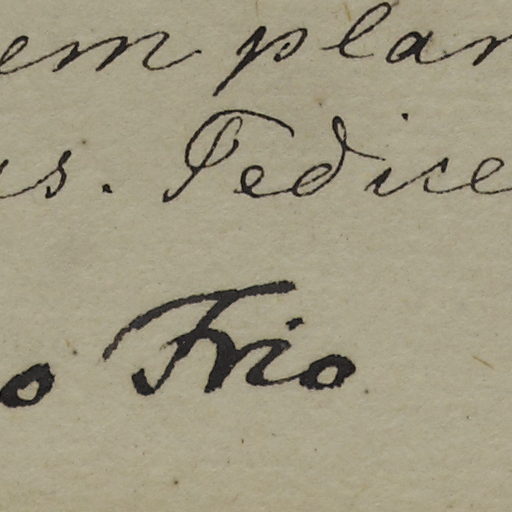 em plan
us. Pedice
o Frio